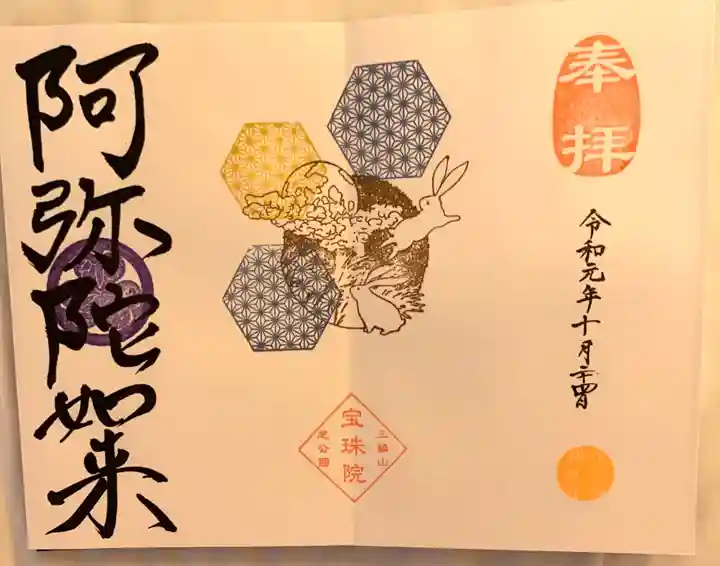 奉拝
令和元年十月
三縁山
宝珠院
芝公園
阿弥陀如来